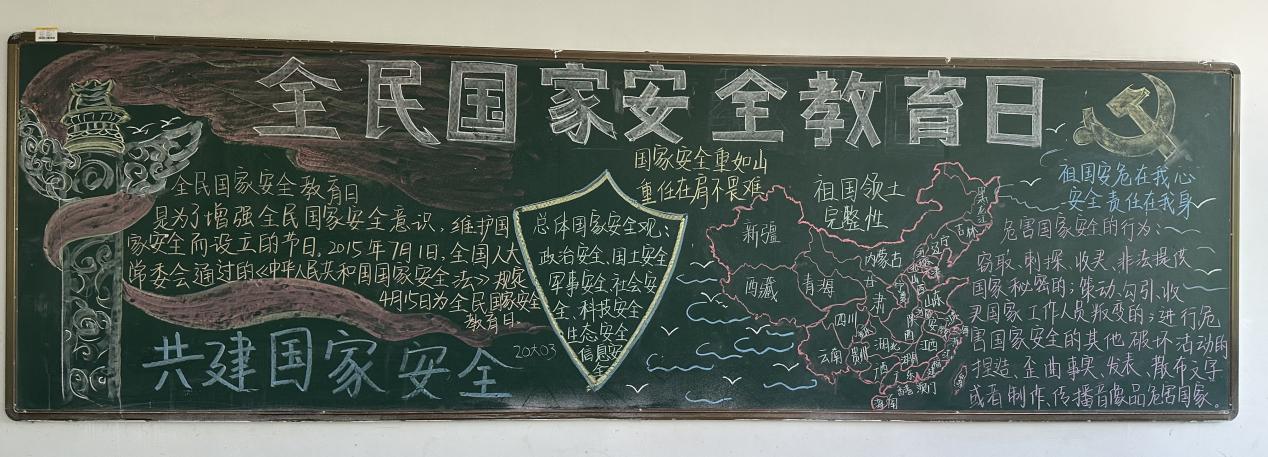 全民国家安全教育日
全民国家安全教育日
是为了增强全民国家安全意识，维护国
家安全而设立的节日。2015年7月1日，全国人大
常委会通过的《中华人民共和国国家安全法》规定
4月15日为全民国家安全
教育日。
共建国家安全
20大03
总体国家安全观：
政治安全、国土安全
军事安全、社会安
全、科技安全
生态安全
信息安
全
国家安全重如山
重任在肩不畏难
祖国领土
完整性
新疆
西藏
青海
内蒙古
甘
肃
四川
云南
贵州
湖北
广西
江西
海南
澳门
山东
吉林
辽宁
黑龙江
祖国安危在我心
安全责任在我身
危害国家安全的行为：
窃取、刺探、收买、非法提供
国家秘密的；策动、勾引、收
买国家工作人员叛变的；进行危
害国家安全的其他破坏活动的
捏造、歪曲事实、发表、散布文字
或者制作、传播音像品危害国家。